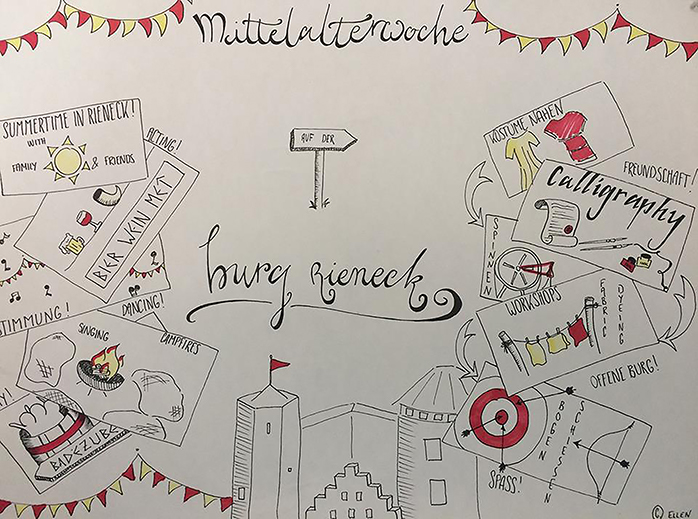 Mittelalterwoche
AUF DER
burg Rieneck
SUMMERTIME IN RIENECK!
WITH
FAMILY & FRIENDS
ACTING!
BIER WEIN MET
DANCING!
STIMMUNG!
SINGING
CAMPFIRES
BADEZUBE
KOSTÜME NÄHEN
FREUNDSCHAFT!
Calligraphy
SPINNEN
WORKSHOPS
FABRIC
DYEING
OFFENE BURG!
BOGEN
SCHIESSEN
SPASS!
© ELLEN